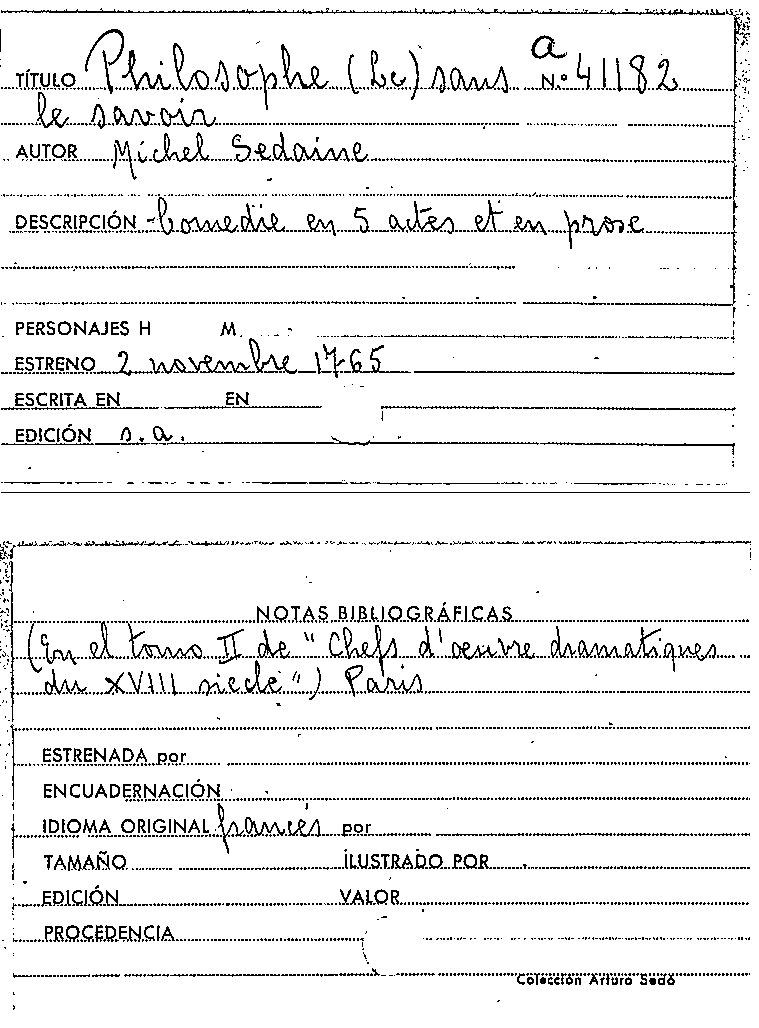 TÍTULO Philosophe (Le) sans a N.º 41182
le savoir
AUTOR Michel Sedaine
DESCRIPCIÓN - Comedie en 5 actes et en prose
PERSONAJES H M.
ESTRENO 2 novembre 1765
ESCRITA EN EN
EDICIÓN s.a.
NOTAS BIBLIOGRÁFICAS
(En el tomo II de "Chefs d'oeuvre dramatiques
du XVIII siecle") Paris
ESTRENADA por
ENCUADERNACIÓN
IDIOMA ORIGINAL francés por
TAMAÑO ILUSTRADO POR
EDICIÓN VALOR
PROCEDENCIA
Colección Arturo Sedó